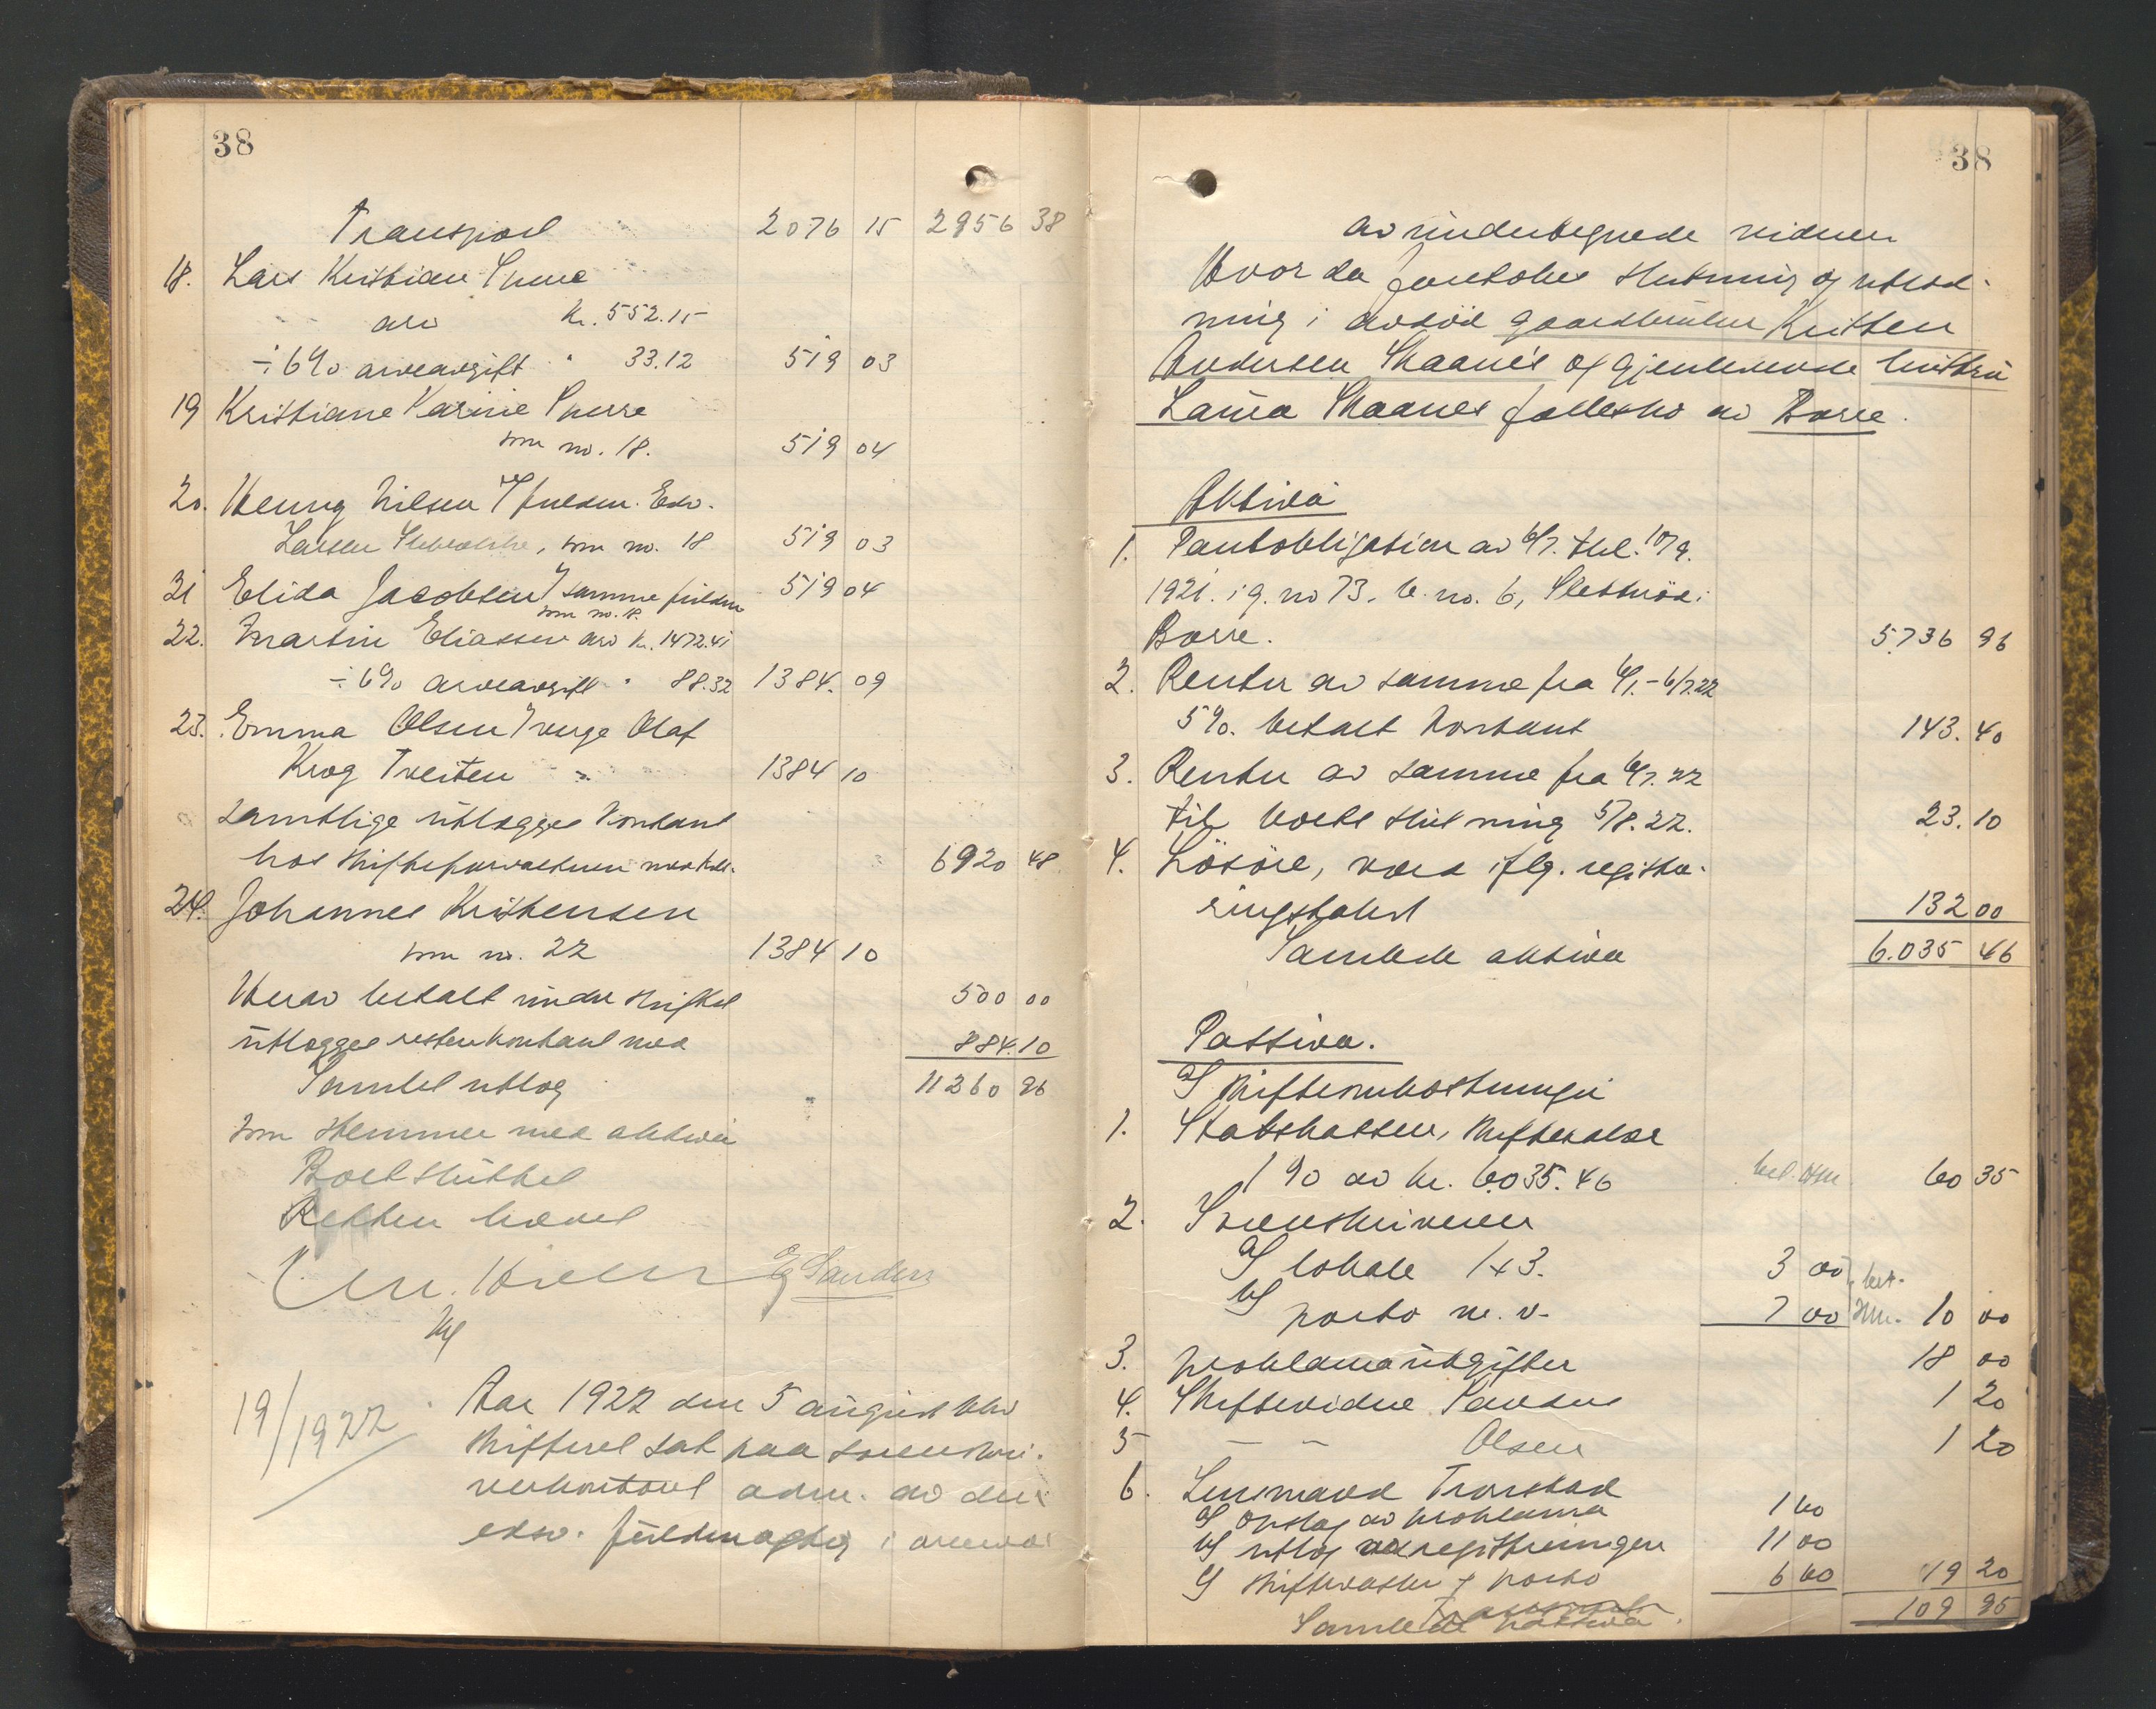 38
Transport 2076 15 2956 38
18. Lars Kristian Snerre
arv kr. 552.15
÷ 6% arveavgift " 33.12 519 03
19 Kristiane Karine Snerre
som no. 18. 519 04
20. Henny Nilsen ved fuldm. Edv.
Larsen som no. 18 519 03
21 Elida Jacobsen samme fuldm
som no. 18. 519 04
22. Martin Eliassen arv kr. 1472.41
÷ 6% arveavgift " 88.32 1384. 09
23. Emma Olsen verge Olaf
Krog Tveiten " 1384 10
samtlige utlægges kontant
hos skifteforvalteren med tils. 6920 48
24. Johannes Kristensen
som no. 22 1384 10
Herav betalt under skiftet 500 00
utlægges resten kontant med 884.10
Samlet utlæg 11260 96
som stemmer med aktiva
Boet sluttet
Retten hævet
19/1922
Aar 1922 den 5 august blev
skifteret sat paa sorenskri-
verkontoret adm. av den
edsv. fuldmægtig i nærvær
38
av undertegnede vidner
Hvor da foretokes slutning og utlod-
ning i avdød gaardbruker Kristen
Andersen Skaanes og gjenlevende hustru
Laura Skaanes fællesbo av Borre.
Aktiva
1. Pantobligation av 6/7. thl. 10/9.
1921. i g. no 73. b. no. 6, i
Borre. 5.736 96
2. Renter av samme fra 6/1.-6/7.22
5%. betalt kontant 143. 40
3. Renter av samme fra 6/7. 22
til boets slutning 5/8. 22. 23. 10
4. Løsøre, værd iflg. registre-
ringstakst 132 00
Samlede aktiva 6.035 46
Passiva.
a/ Skifteomkostninger
1. Statskassen, skifteavgift
1 % av kr. 6.035.46 60 35
2. Sorenskriveren
a/ lokale 1x3. 3 00
b/ porto m. v. 7 00 bet. 10 00
3. proklamautgifter 18 00
4. Skiftevidne 1 20
5 — — Olsen 1 20
6. Lensmand Tronstad
a/ opslag av proklama 1 60
b/ utlæg ved registreringen 11 00
c/ og porto 6 60 19 20
Samlede passiva 109 95